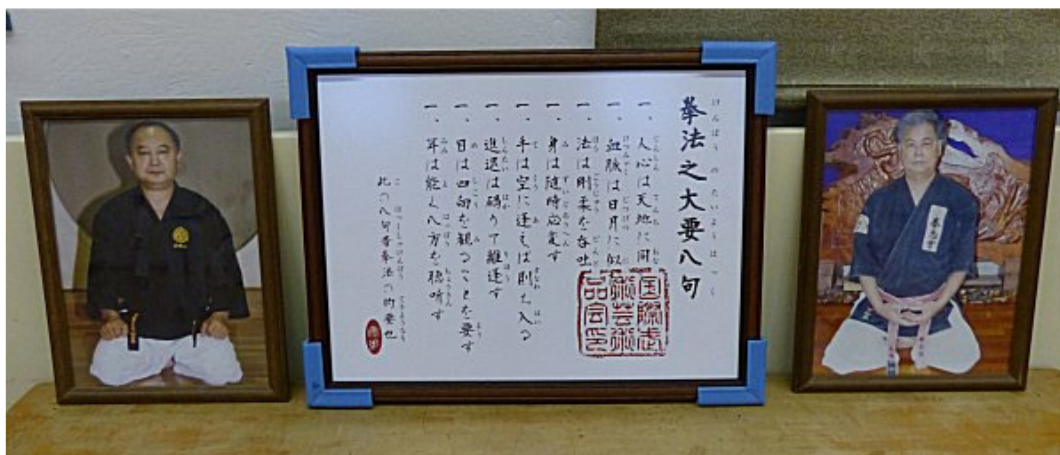 拳法之大要八句
一、人心は天地に同
一、血脈は日月に似
一、法は剛柔を呑吐
一、身は随時応変す
一、手は空に逢えば則ち入る
一、進退は碼りて離逢す
一、目は四向を観ることを要す
一、耳は能く八方を聴
此の八句者拳法の的要也
国際武
術芸術
品会印